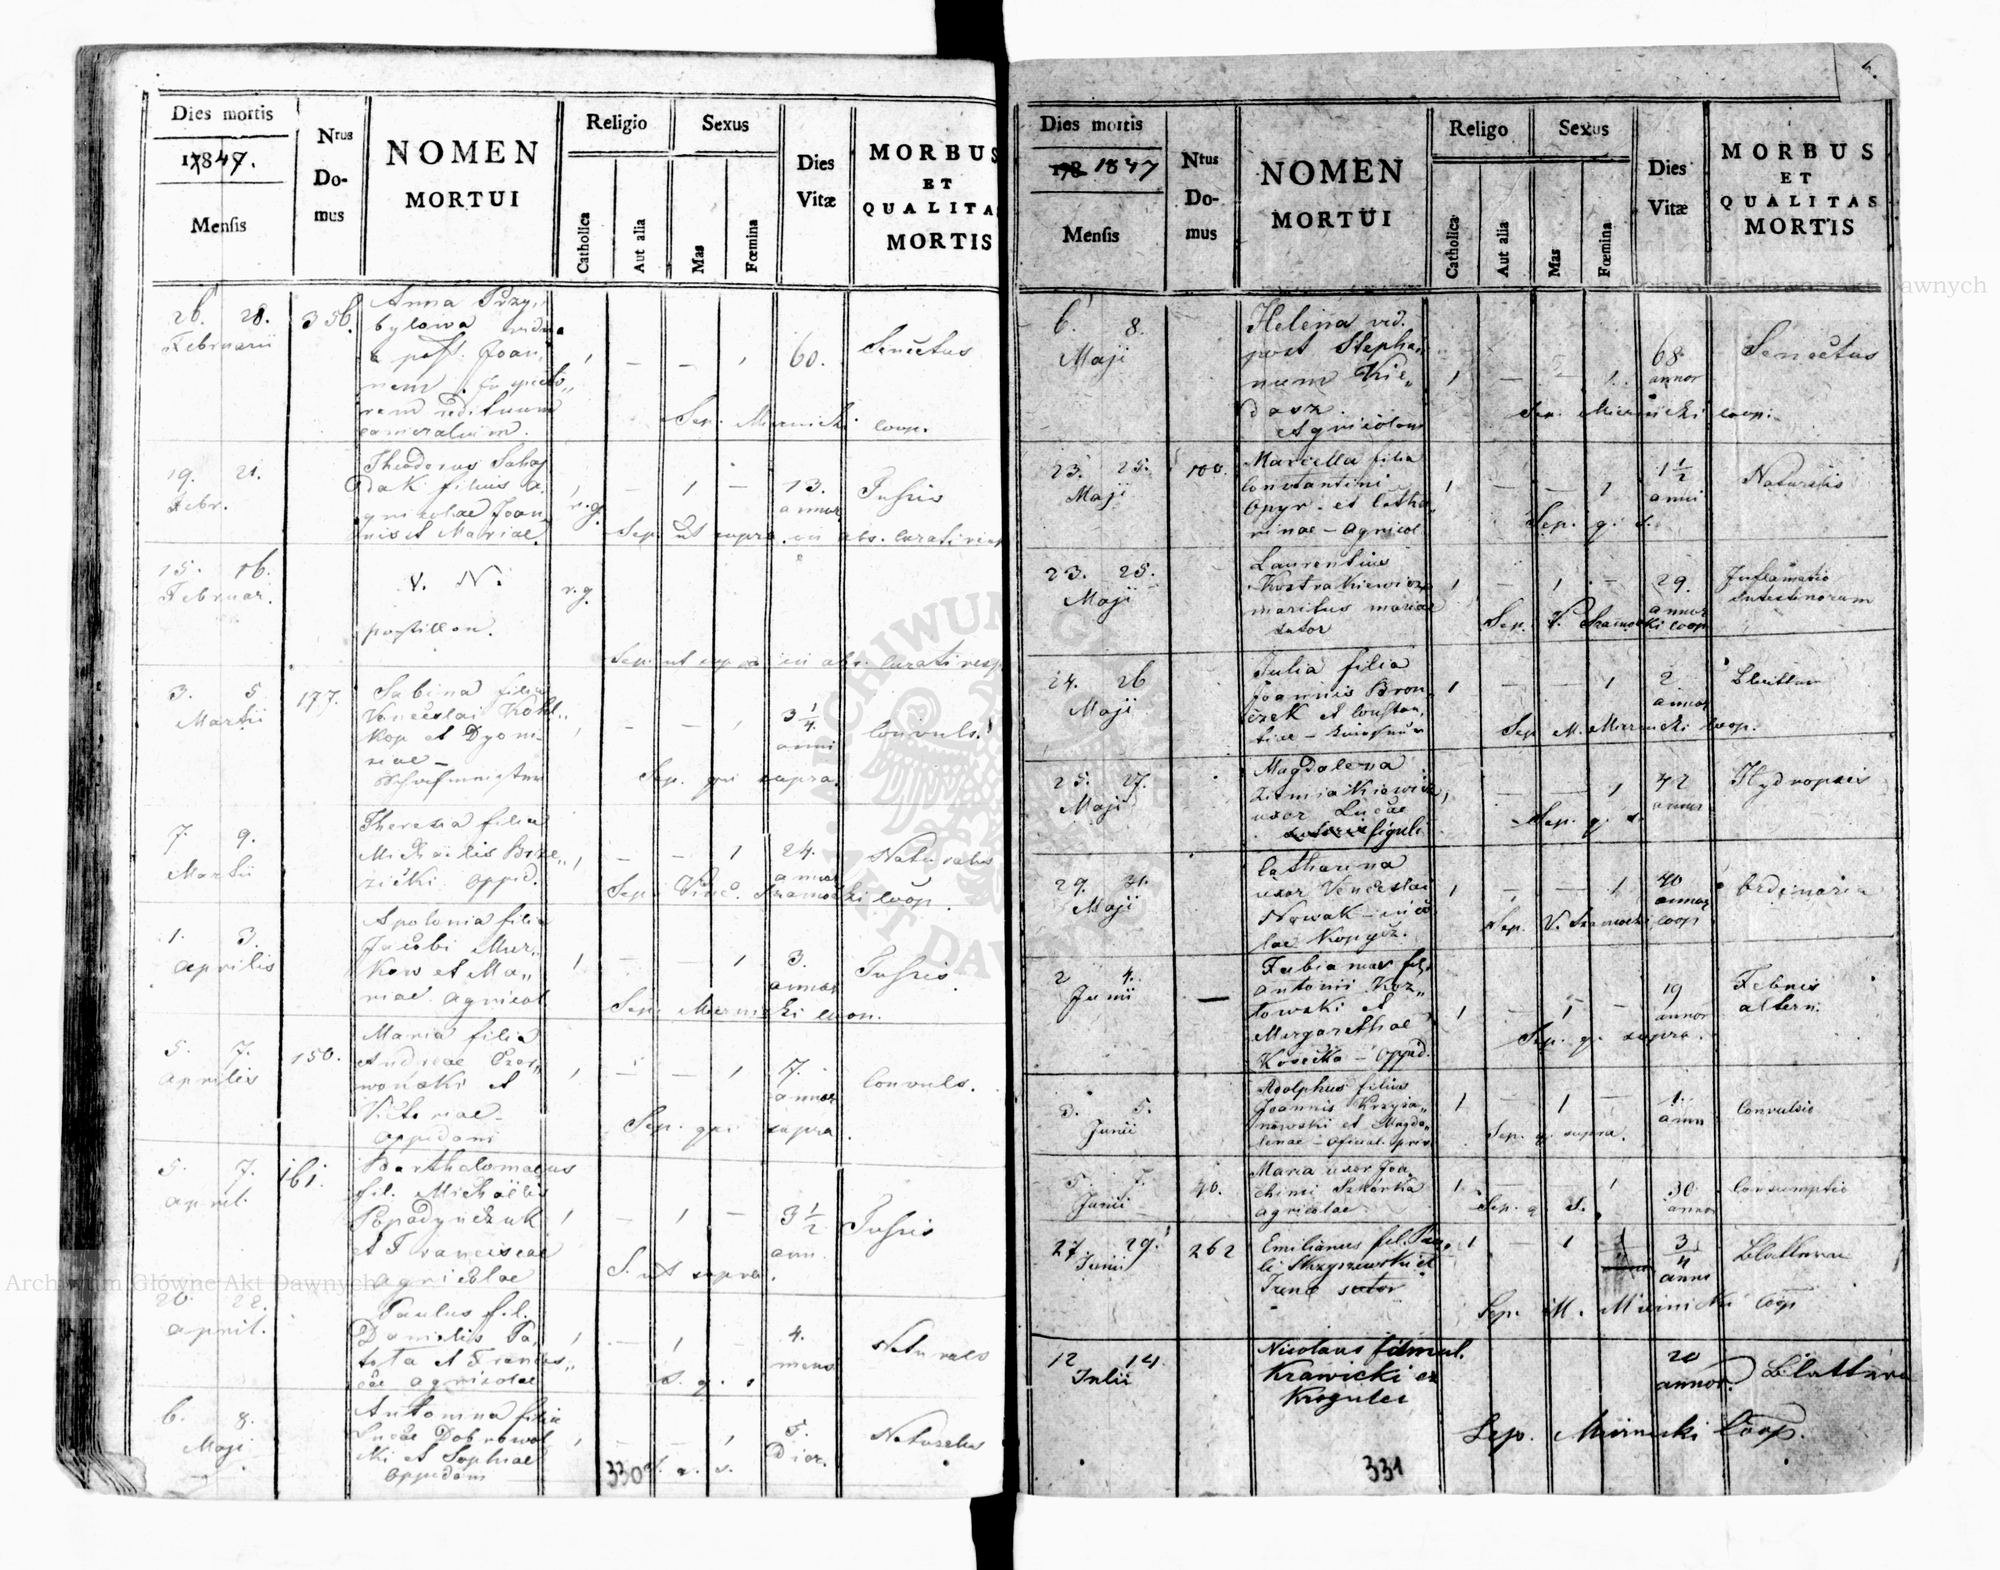 Dies mortis
17847.
Mensis
Ntus
Do-
mus
NOMEN
MORTUI
Religio
Catholica
Aut alia
Sexus
Mas
Fœmina
Dies
Vitæ
MORBUS
ET
QUALITA
MORTIS
26. 28.
Februarii
356.
Anna Przy
bylowa vidua
post. Joan
nem
cameralium.
1 — — 1
60.
Senectus
Sep. Miernicki coop.
19. 21.
Febr.
Theodorus
filius a
gricolae Joan
nis et Mariae
1 — 1 —
r.g.
13.
annor
Tussis
Sep. ut supra in abs. Curati
15. 16.
Februar.
N. N.
postillon.
r.g.
Sep. ut supra in abs. Curati resp
3. 5.
Martii
177.
Sabina filia
Venceslai
kop et Dyoni
siae —
1 — — 1
3 1/4
anni
Convuls.
Sep. qui supra.
7. 9.
Martii
Theresia filia
Michaëlis Brze„
zicki oppid.
1 — — 1
24.
annor
Naturalis
Sep. Vinc. Szamocki coop.
1. 3.
Aprilis
Apolonia filia
Jacobi Mur„
kow et Ma„
riae agricol
1 — — 1
3.
annor
Tussis.
Sep. Miernicki coop.
5. 7.
Aprilis
150.
Maria filia
Andreae Czer„
wonski et
Victoriae —
oppidani
1 — — 1
7.
annor
Convuls.
Sep. qui supra.
5. 7.
April.
161.
Bartholomaeus
fil. Michaëlis
Popadynczuk
et Franciscae
agricolae
1 — 1 —
3 1/2
ann.
Tussis
S. ut supra.
20. 22.
April.
Paulus fil.
Danielis Pa„
tota et Francis„
cae agricolae
1 — 1
4.
mens
Naturales
S. q. s
6. 8.
Maji
Antonina filia
Lucae Dobrowol
ski et Sophiae
oppidani
1 — — 1
5.
Dier.
Naturalis
S. q. s.
330
6.
Dies mortis
178 1847
Mensis
Ntus
Do-
mus
NOMEN
MORTUI
Religo
Catholica
Aut alia
Sexus
Mas
Fœmina
Dies
Vitæ
MORBUS
ET
QUALITAS
MORTIS
6. 8.
Maji
Helena vid.
post Stepha„
num Kie„
dasz.
Agricolam
1 — — 1.
68
annor
Senectus
Sep. Miernicki coop.
23. 25.
Maji
100.
Marcella filia
Constantini
Opyr. et Catha„
rinae — agricol
1 — — 1
1 1/2
anni
Naturalis
Sep. q. s.
23. 25.
Maji
Laurentius
Kostrakiewicz
maritus mariae
sutor
1 — 1 —
29.
annor
Inflamatio
intestinorum
Sep. V. Szamocki coop
24. 26
Maji
Julia filia
Joannis Bron„
czek et Constan„
tiae —
1 — — 1
2
annor
Sep M. Miernicki coop.
25. 27.
Maji
Magdalena
Ziemiakiewicz,
uxor Lucae
figuli
— — 1
42
annor
Hydropsis
Sep. q. s.
29. 31.
Maji
Catharina
uxor Venceslai
Nowak —
lae Kopycz.
1 — — 1
40
annor
Ordinaria
Sep. V. Szamocki coop
2 4.
Junii
—
Fabianus fil.
Antonii Koz„
lowski et
Margarethae
Kosecka — oppid.
1 — 1 —
19
annor
Febris
altern.
Sep. q. supra.
3. 5.
Junii
Adolphus filius
Joannis Krzyia„
nowski et Magda„
lenae — priv.
1 — 1 —
1.
anni
Convulsio
Sep. q. supra.
5. 7.
Junii
40.
Maria uxor Joa„
chimi Szkórka
agricolae
1. — — 1
30.
annor
Consumptio
Sep. q. S.
27. 29.
Junii
262
Emilianus fil. Pau„
li Skrzyszewski et
Irene sutor
1 — 1
3/4
anni
Sep. M. Miernicki Coop
12 14.
Julii
Nicolaus famul.
Krawicki ex
Krogulec
20
annor.
Sep. Miernicki Coop.
331
Archiwum Główne Akt Dawnych
Archiwum Główne Akt Dawnych
ARCHIWUM GŁÓWNE AKT DAWNYCH